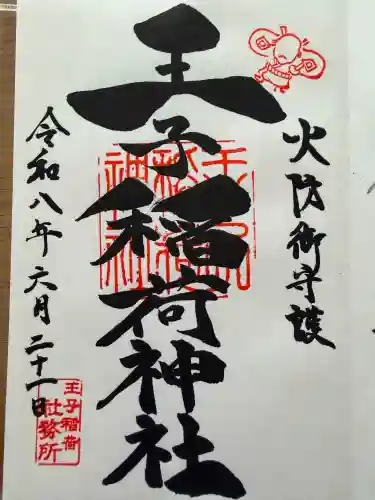 火防御守護
王子稲荷神社
令和八年六月二十一日
王子稲荷
社務所